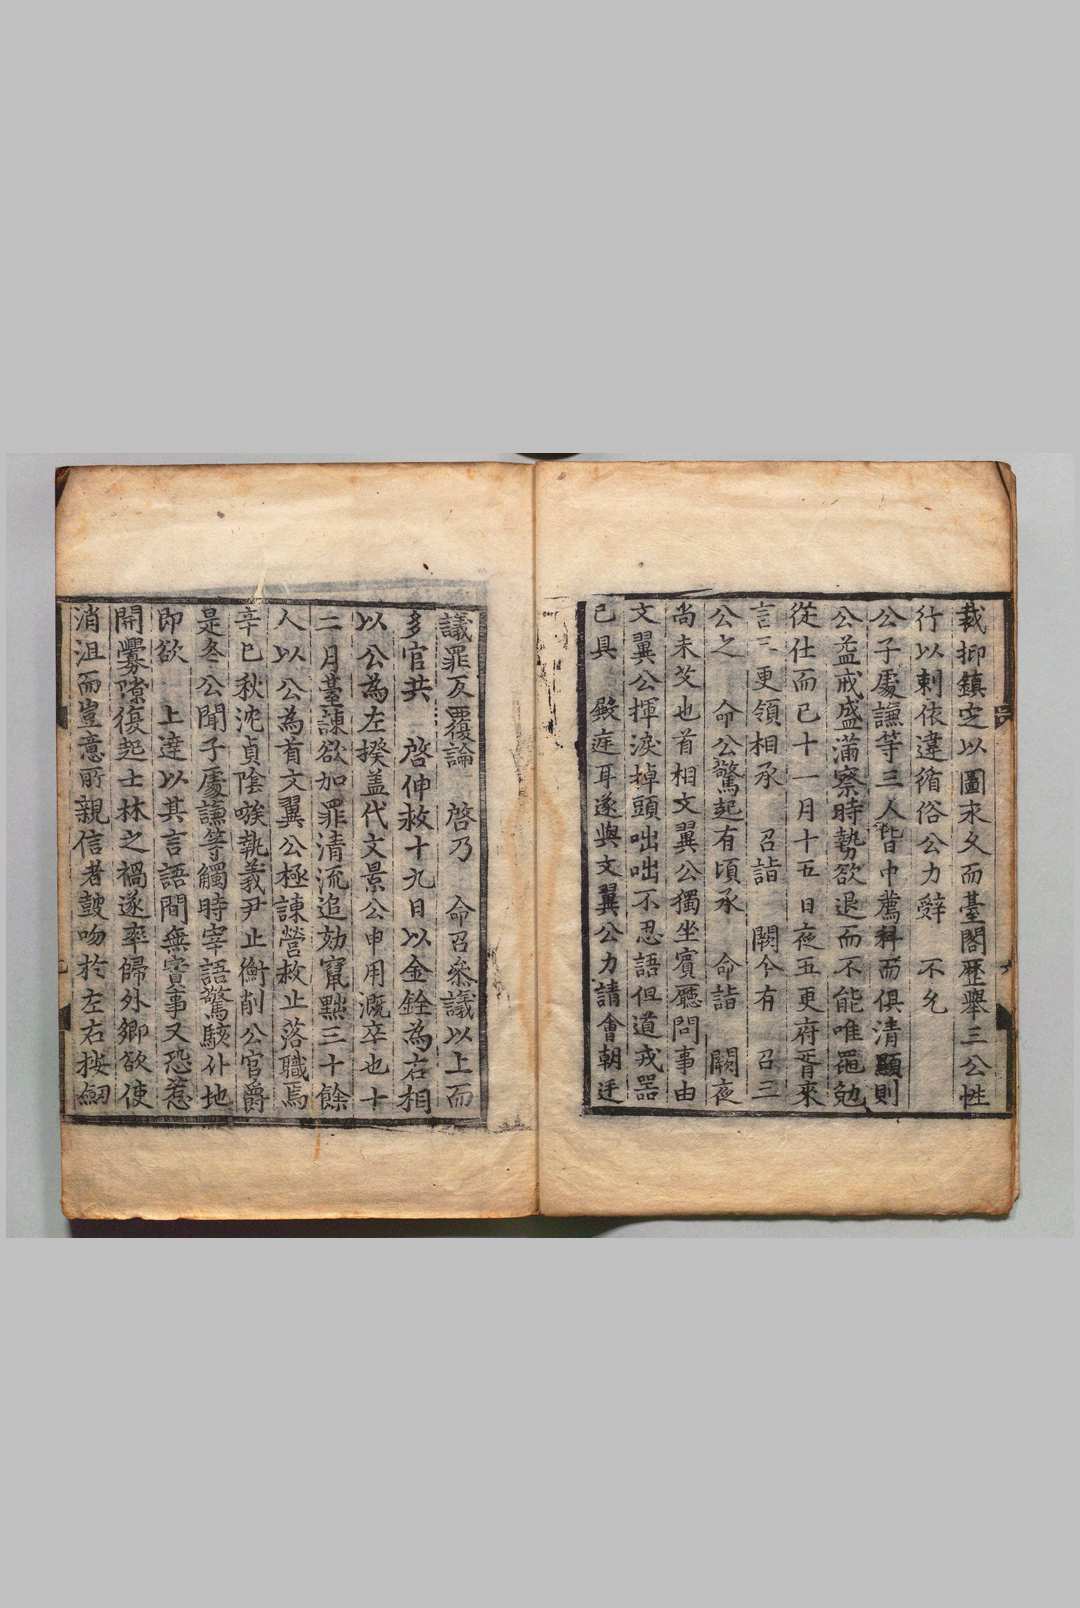 裁抑鎮定以圖永久而臺閣歷舉三公性
行以刺依違循俗公力辭　不允
公子處謙等三人皆中薦科而俱清顯則
公益戒盛滿察時勢欲退而不能唯黽勉
從仕而已十一月十五日夜五更府胥來
言三更領相承　召詣　闕今有　召三
公之　命公驚起有頃承　命詣　闕夜
尚未艾也首相文翼公獨坐賓廳問事由
文翼公揮淚掉頭咄咄不忍語但道戎器
已具　殿庭耳遂與文翼公力請會朝廷
議罪反覆論　啓乃　命召叅議以上而
多官共　啓伸救十九日以金銓為右相
以公為左揆盖代文景公申用漑卒也十
二月臺諫欲加罪清流追劾竄黜三十餘
人以公為首文翼公極諫營救止落職焉
辛巳秋沈貞陰嗾執義尹止衡削公官爵
是冬公聞子處謙等觸時宰語驚駭仆地
即欲　上達以其言語間無實事又恐惹
開釁隙復起士林之禍遂率歸外鄉欲使
消沮而豈意所親信者鼓吻於左右按劒